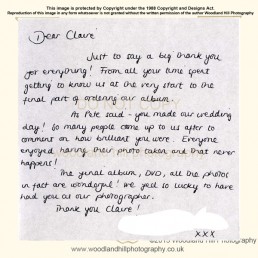 This image is protected by Copyright under the 1988 Copyright and Designs Act.
Reproduction of this image is not granted without the written permission of the author Woodland Hill Photography
Dear Claire
Just to say a big thank you
for everything! From all your time spent
getting to know us at the very start to the
final part of ordering our album.
As Pete said - you made our wedding
day! So many people came up to us after to
comment on how brilliant you were. Everyone
enjoyed having their photo taken and that never
happens!
The final album, DVD, all the photos
in fact are wonderful! We feel so lucky to have
had you as our photographer.
Thank you Claire!
xxx
©2013 Woodland Hill Photography
www.woodlandhillphotography.co.uk